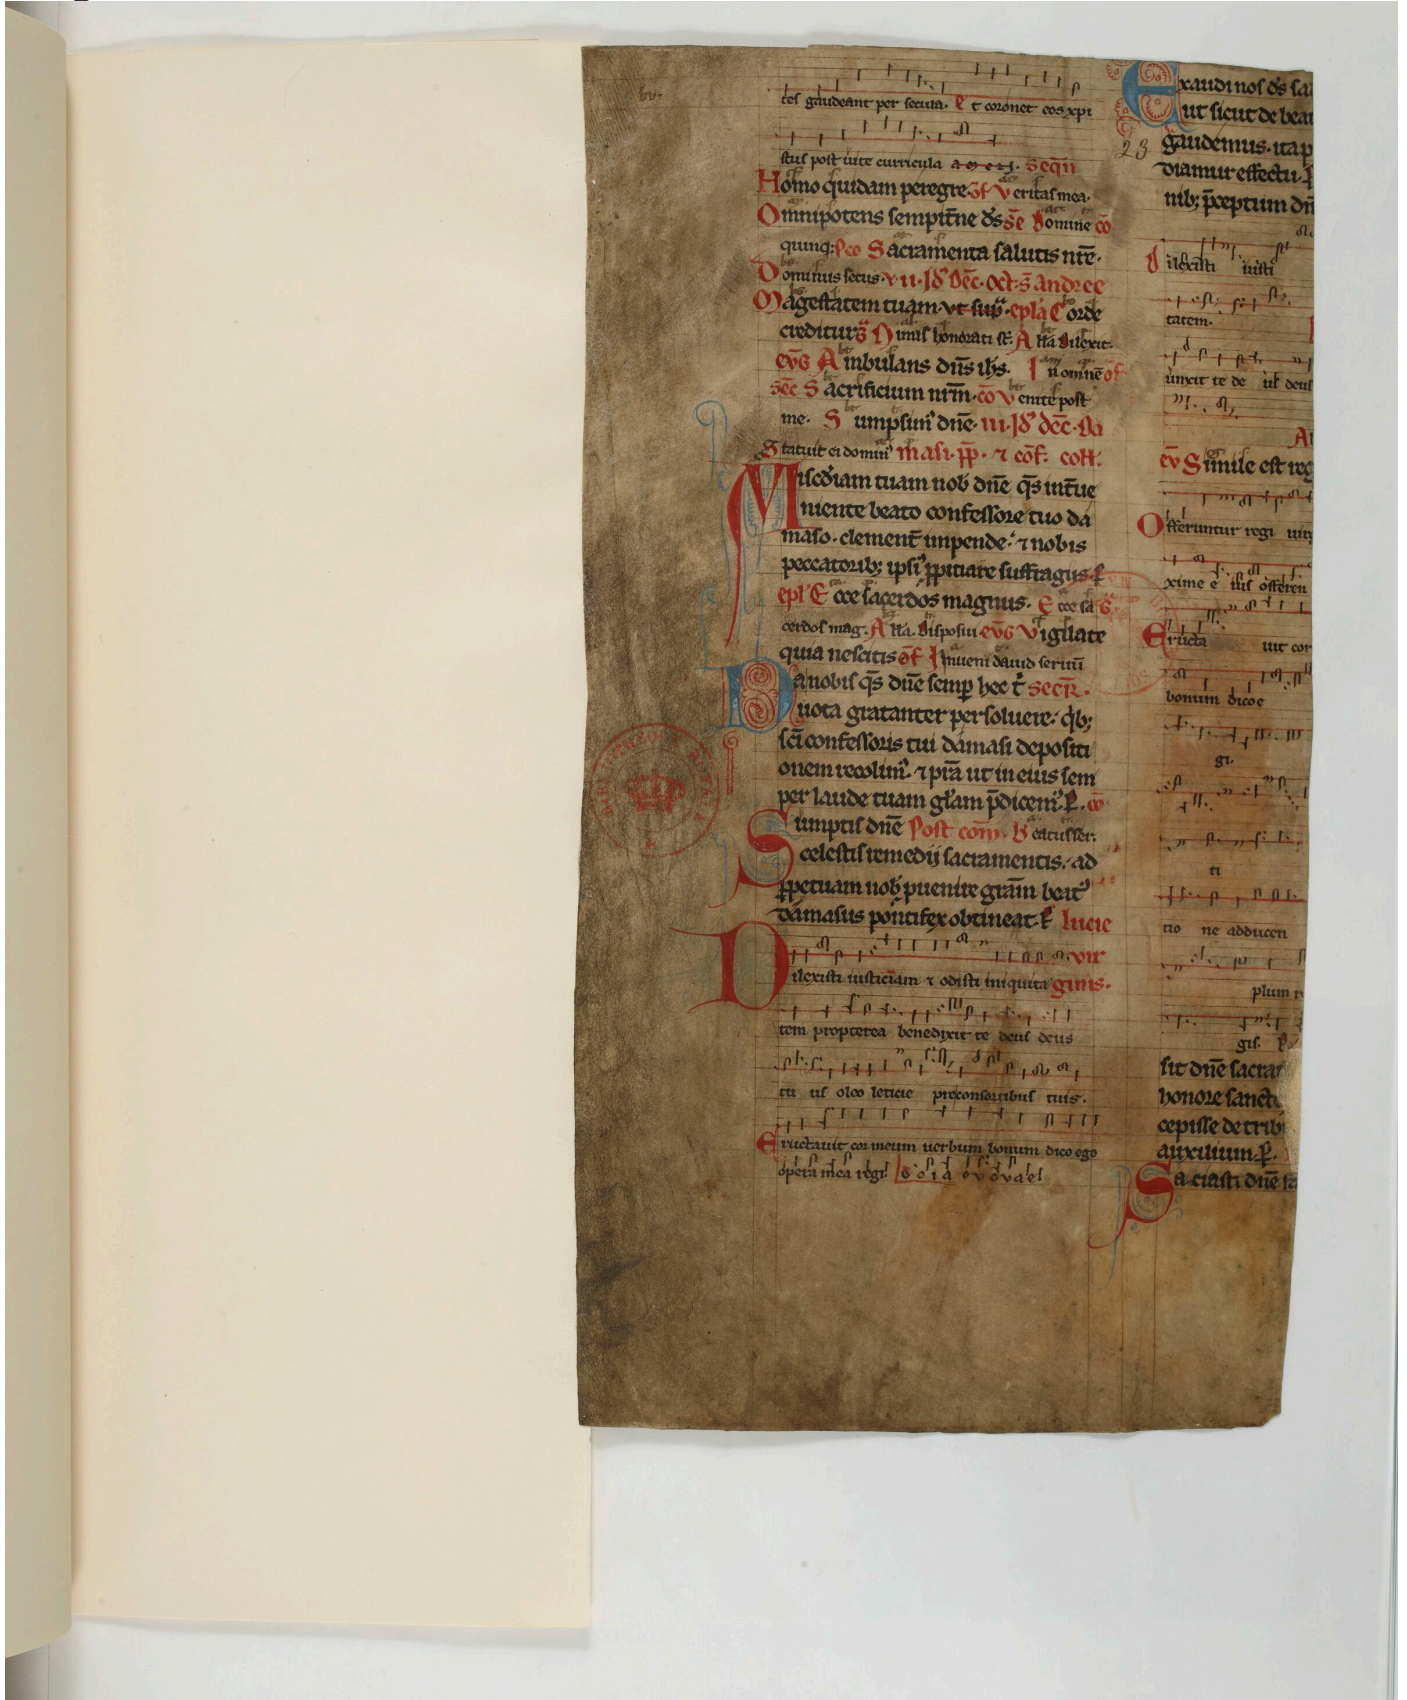 tes gaudeant per secula. Et coronet eos xpi
stus post uite curricula amen. Seqn̄
Homo quidam peregre. Of Veritas mea.
Omnipotens sempit̄ne ds̄ se Domine cō
quinq; sco Sacramenta salutis nr̄e.
Dominus secus. vii. Id' dec̄. oct. s̄ andree
Magestatem tuam. vt sup̄. epl̄a Corde
creditur g̃ Nimis honorati st̄. All̄a Dilexit.
evḡ Ambulans dn̄s ih̄s. In omnē of
sec̄ Sacrificium nrm̄. cō Venite post
me. Sumpsim' dn̄e. iii. Id' dec̄. Da
Statuit ei domin' masi. pp̄. ⁊ cof̄. coll̄.
Misc̄diam tuam nob̄ dn̄e qs̄ int̄ue
niente beato confessore tuo da
maso. clement̄ impende: ⁊ nobis
peccatorib; ipsi' p̄pitiare suffragiis. P̄
epl̄ Ecce sacerdos magnus. Ecce sa g̃
cerdos mag. All̄a. Disposui evḡ Vigilate
quia nescitis of̄ Inueni dauid seruū
Da nobis qs̄ dn̄e semp̄ hec t' secr̄.
uota gratanter persoluere: qb;
sc̄i confessoris tui damasi depositi
onem recolim'. ⁊ p̄ra ut in eius sem
per laude tuam gl̄am p̄dicem'. P̄. cō
Sumptis dn̄e Post com̄. Beatus ser.
celestis remedij sacramentis: ad
p̄petuam nob̄ puenire gr̄am beat'
damasus pontifex obtineat. P̄ lucie
vir
Dilexisti iusticiam ⁊ odisti iniquita ginis.
tem propterea benedixit te deus deus
tu us oleo leticie preconsortibus tuis.
Eructauit cor meum uerbum bonum dico ego
opera mea regi. Gloria evovael
Exaudi nos ds̄ sa
ut sicut de bea
23
gaudemus. ita p
diamur effectu. P̄
nib; p̄ceptum dn̄
Dilexisti iusti
tatem.
unxit te de us deus
Al
ev̄ Simile est reg
Offeruntur regi uir
xime e ius offeren
Eructa uit cor
bonum dico e
gi.
ti
tio ne adducen
plum
gis.
sit dn̄e sacra
honore sancte
cepisse de trib
auxilium. P̄.
Saciasti dn̄e fa